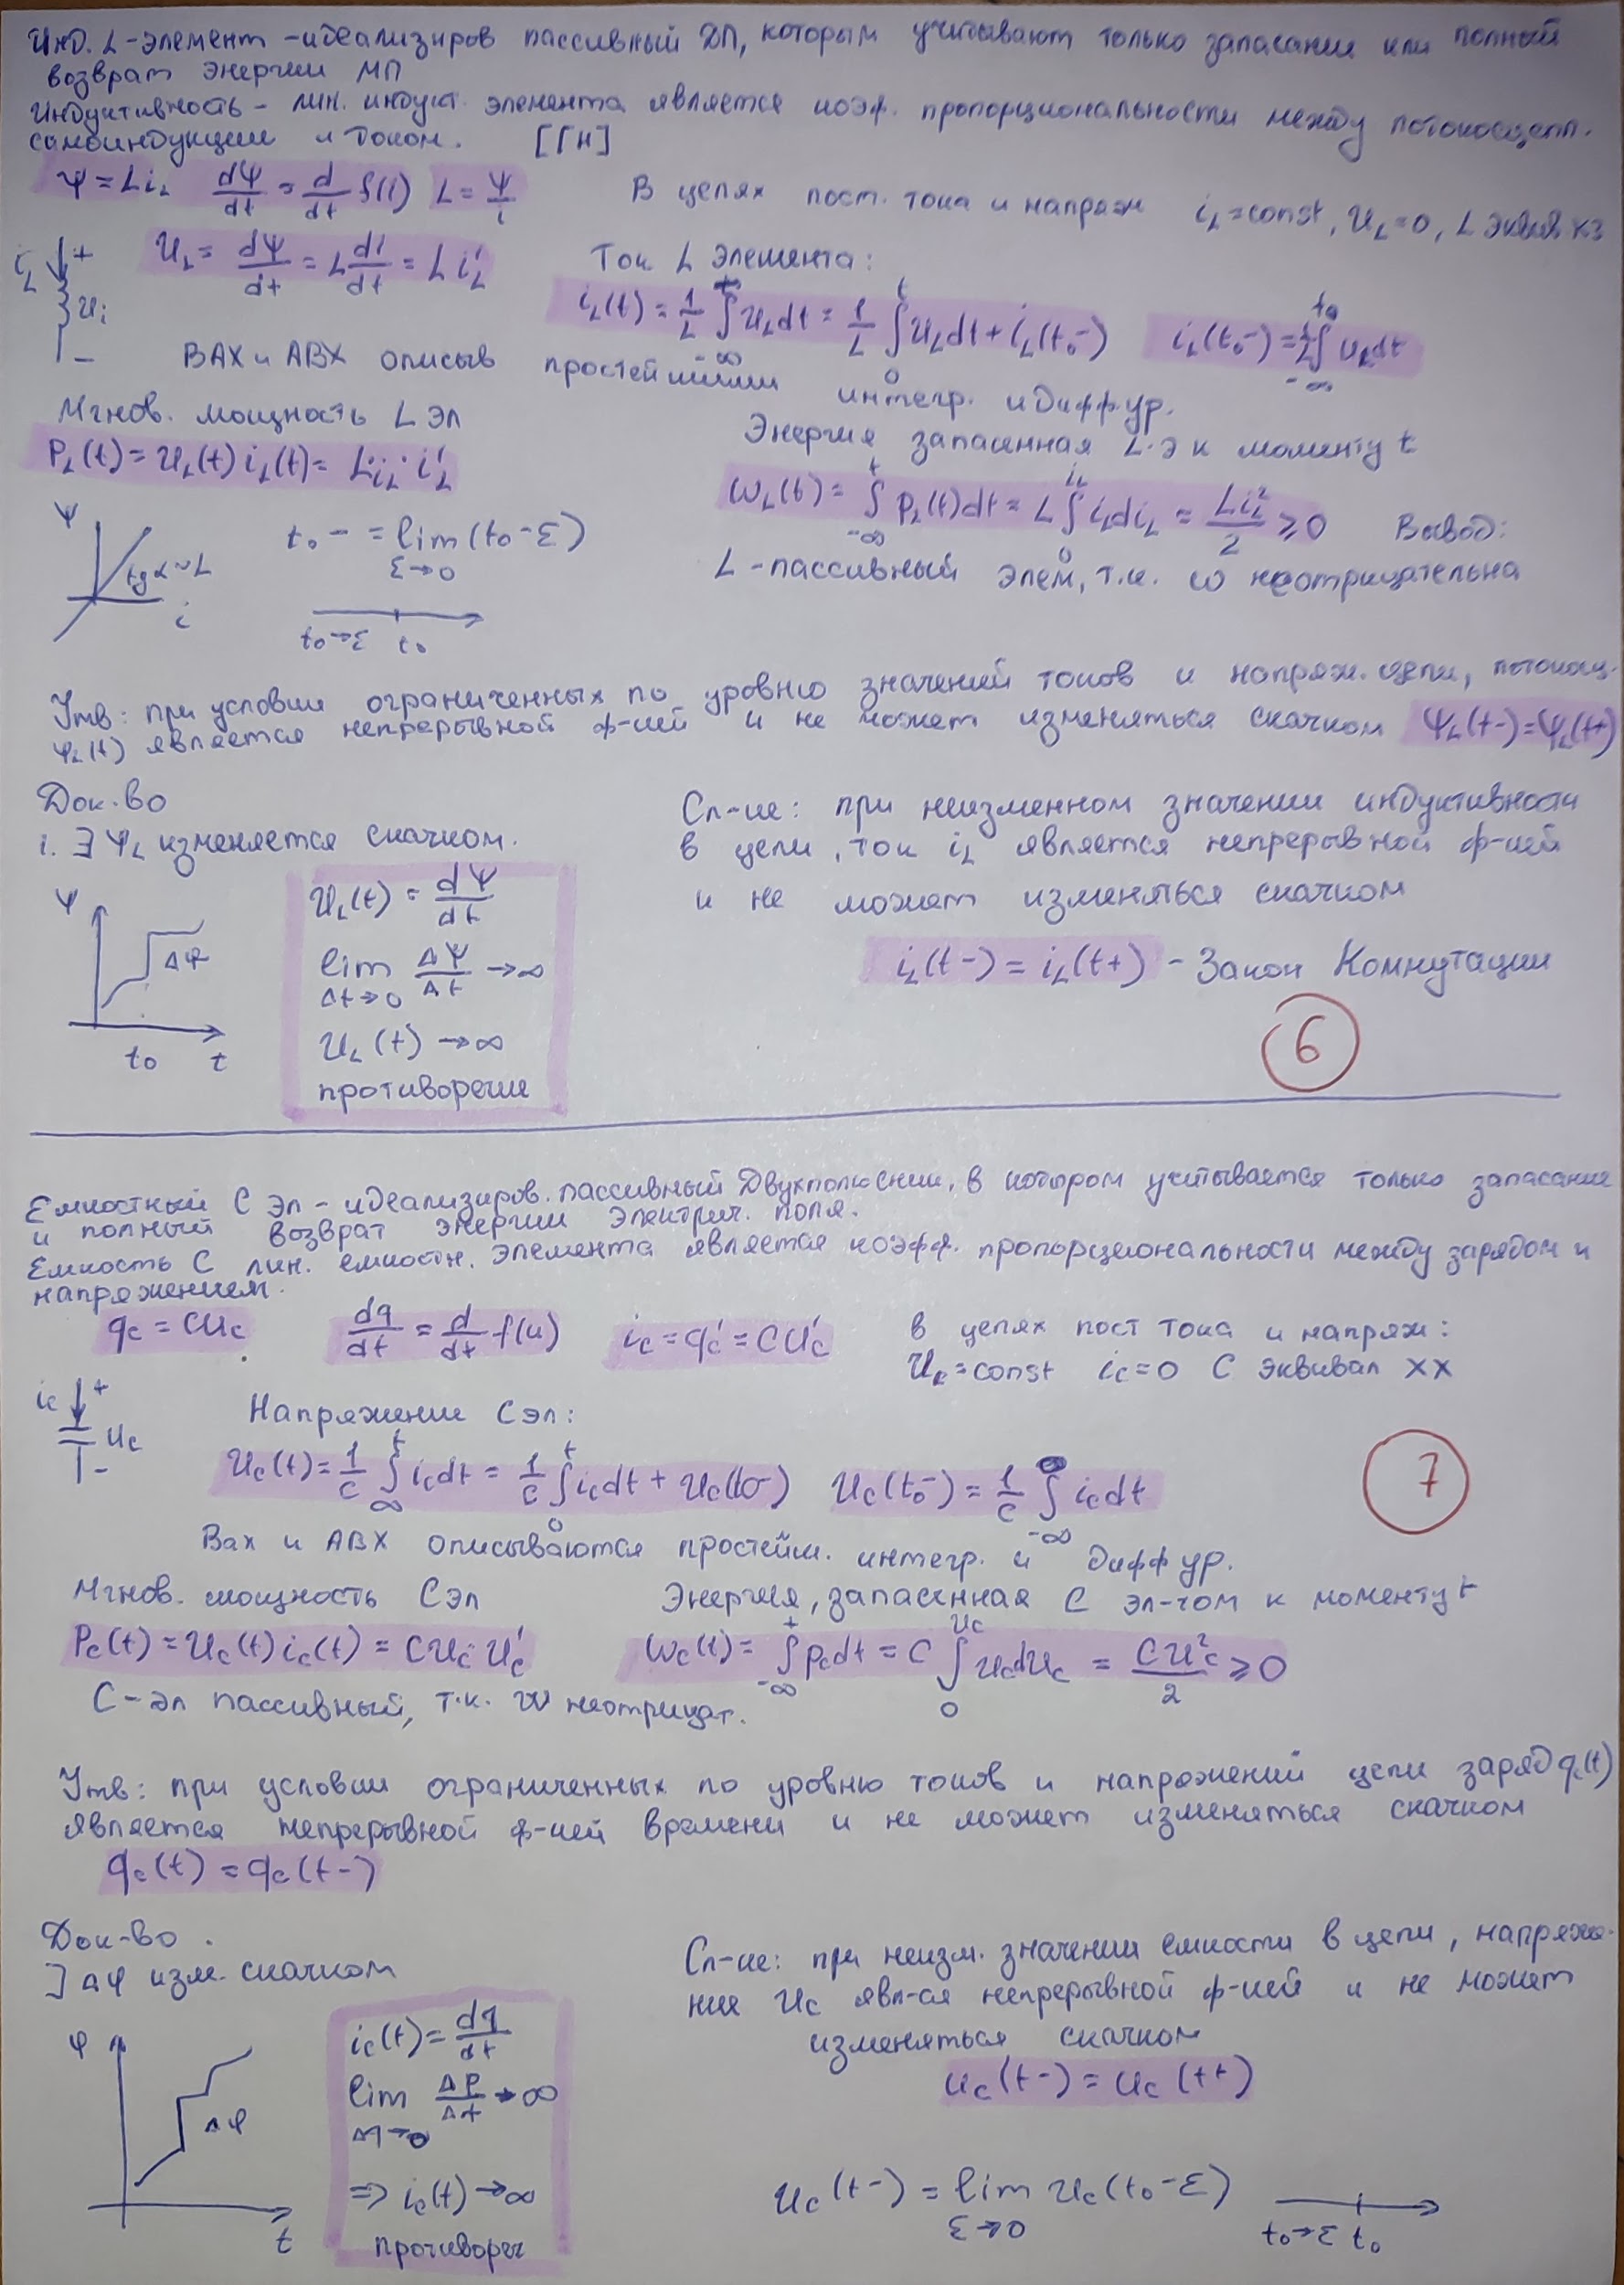 Инд. L-элемент - идеализиров пассивный ДП, которым учитывают только запасание или полный
возврат энергии МП
Индуктивность - лин. индукт. элемента является коэф. пропорциональности между потокосцепл.
самоиндукции и током. [Гн]
Ψ = Li_L dΨ/dt = d/dt f(i) L = Ψ/i
В цепях пост. тока и напряж i_L = const, U_L = 0, L эквив КЗ
i_L + U_i -
U_L = dΨ/dt = L di/dt = L i'_L
Ток L элемента:
i_L(t) = 1/L ∫_{-∞}^{t} U_L dt = 1/L ∫_0^t U_L dt + i_L(t_0-) i_L(t_0-) = 1/L ∫_{-∞}^{t_0} U_L dt
ВАХ и АВХ описыв простейшими интегр. и дифф ур.
Мгнов. мощность L эл
P_L(t) = U_L(t) i_L(t) = L i_L · i'_L
Энергия запасенная L.э к моменту t
W_L(t) = ∫_{-∞}^{t} P_L(t)dt = L ∫_0^{i_L} i_L di_L = Li_L²/2 ≥ 0 Вывод:
L-пассивный элем, т.к. ω неотрицательна
Ψ tgα ~ L i
t_0- = lim (t_0-ε)
ε→0
t_0→ε t_0
Утв: при условии ограниченных по уровню значений токов и напряж. цепи, потокосц.
Ψ_L(t) является непрерывной ф-ией и не может изменяться скачком Ψ_L(t-) = Ψ_L(t+)
Док-во
i. ∃ Ψ_L изменяется скачком.
Ψ Δφ t_0 t
U_L(t) = dΨ/dt
lim ΔΨ/Δt → ∞
Δt→0
U_L(t) → ∞
противоречие
Сл-ие: при неизменном значении индуктивности
в цепи, ток i_L является непрерывной ф-ией
и не может изменяться скачком
i_L(t-) = i_L(t+) - Закон Коммутации
6
Емкостный С эл - идеализиров. пассивный Двухполюсник, в котором учитывается только запасание
и полный возврат энергии электрич. поля.
Емкость С лин. емкостн. элемента является коэфф. пропорциональности между зарядом и
напряжением.
q_c = CU_c dq/dt = d/dt f(u) i_c = q'_c = CU'_c
в цепях пост тока и напряж:
U_c = const i_c = 0 С эквивал ХХ
i_c + U_c -
Напряжение С эл:
U_c(t) = 1/C ∫_∞^t i_c dt = 1/C ∫_0^t i_c dt + U_c(t_0-) U_c(t_0-) = 1/C ∫_{-∞} i_c dt
7
Вах и АВХ описываются простейш. интегр. и дифф ур.
Мгнов. мощность С эл
P_c(t) = U_c(t) i_c(t) = CU_c · U'_c
Энергия, запасенная С эл-том к моменту t
W_c(t) = ∫_{-∞}^t p_c dt = C ∫_0^{U_c} U_c dU_c = CU_c²/2 ≥ 0
С-эл пассивный, т.к. W неотрицат.
Утв: при условии ограниченных по уровню токов и напряжений цепи заряд q_c(t)
является непрерывной ф-ией времени и не может изменяться скачком
q_c(t) = q_c(t-)
Док-во.
] Δφ изм. скачком
φ Δφ t
i_c(t) = dq/dt
lim Δp/Δt → ∞
Δq→0
=> i_c(t) → ∞
противореч
Сл-ие: при неизм. значении емкости в цепи, напряже-
ние U_c явл-ся непрерывной ф-ией и не может
изменяться скачком
U_c(t-) = U_c(t+)
U_c(t-) = lim U_c(t_0-ε)
ε→0
t_0→ε t_0